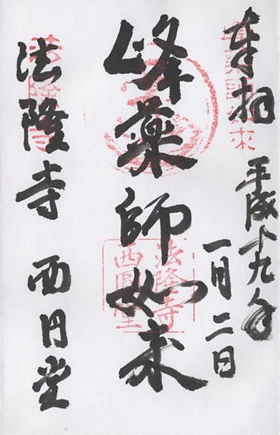 奉拝 平成十九年
一月二日
峰薬師如来
法隆寺 西円堂
法隆寺
西円堂